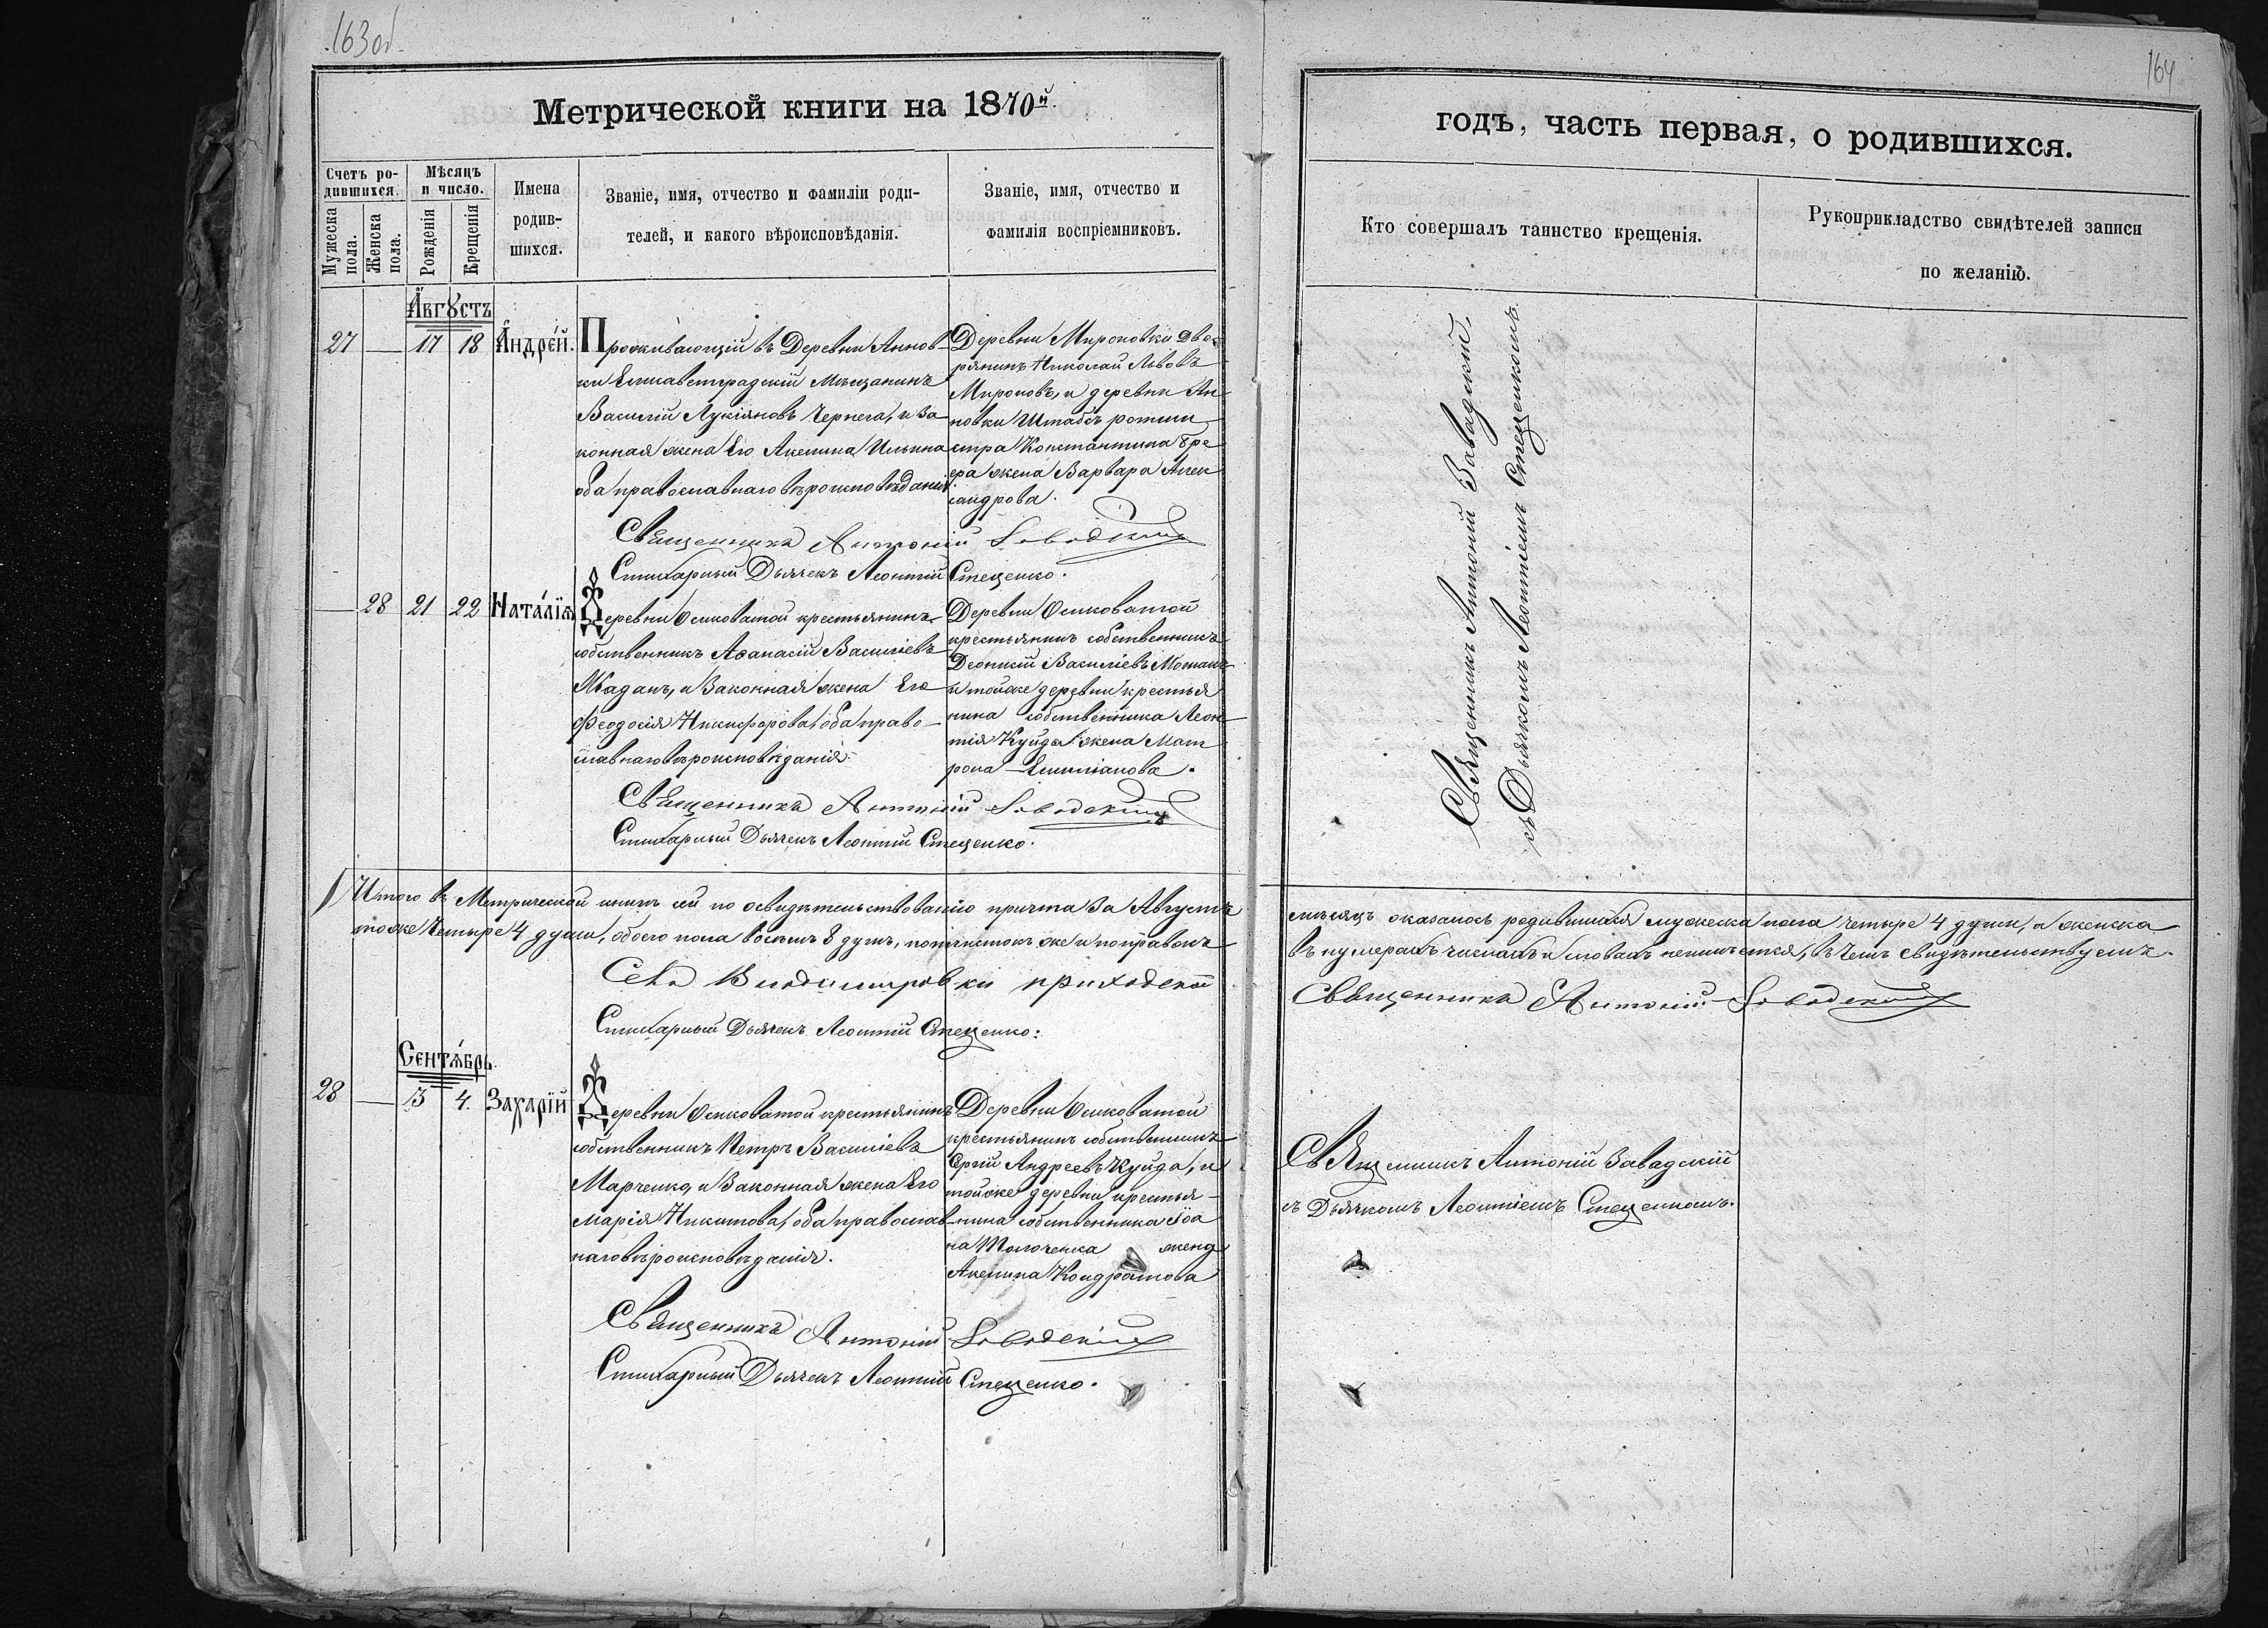 163об.
Метрической книги на 1870й.
Счетъ ро-
дившихся.
Мѣсяцъ
и число.
Мужеска
пола.
Женска
пола.
Рожденія
Крещенія
Имена
родив-
шихся.
Званіе, имя, отчество и фамиліи роди-
телей, и какого вѣроисповѣданія.
Званіе, имя, отчество и
фамилія воспріемниковъ.
Августъ
27 — 17 18 Андрей.
Проживающій въ Деревни Аннов-
ки Елисаветградскій Мѣщанинъ
Василій Лукіановъ Чернега, и за
конная жена Его Акилина Ильина
оба православнаго вѣроисповѣданія
Деревни Мироновки дво-
рянинъ Николай Львовъ
Мироновъ, и деревни Ан-
новки Штабсъ ротми
стра Константина
жена Варвара Алек
сандрова.
Священникъ Антоній Заводскій
Стихарный Дьячекъ Леонтій Стеценко.
— 28 21 22 Наталія
Деревни Осиковатой крестьянинъ
собственникъ Афанасій Василіевъ
и Законная жена Его
Феодосія Никифорова, оба право-
славнаго вѣроисповѣданія.
Деревни Осиковатой
крестьянинъ собственникъ
Василіевъ
и тойже деревни крестья
нина собственника Леон
тія Куйды жена Мат
рона Емиліанова.
Священникъ Антоній Заводскій
Стихарный Дьячекъ Леонтій Стеценко.
Итого въ Метрической книгѣ сей по освидѣтельствованію причта за Августъ
тоже Четыре 4 души, обоего пола восемь 8 душъ, почистокъ же и поправокъ
Села Владимировки приходскій
Стихарный Дьячекъ Леонтій Стеценко:
Сентябрь
28 — 3 4. Захарій
Деревни Осиковатой крестьянинъ
собственникъ Петръ Василіевъ
Марченко, и Законная жена Его
Марія Никитова, оба православ-
наго вѣроисповѣданія.
Деревни Осиковатой
крестьянинъ собственникъ
Сергій Андреевъ Куйда, и
тойже деревни крестья-
нина собственника Іоа
на Толоченка жена
Акилина Кондратова
Священникъ Антоній Заводскій
Стихарный Дьячекъ Леонтій Стеценко.
164
годъ, часть первая, о родившихся.
Кто совершалъ таинство крещенія.
Рукоприкладство свидѣтелей записи
по желанію.
Священникъ Антоній Завадскій,
съ Дьячкомъ Леонтіемъ Стеценкомъ.
мѣсяцъ оказалось родившихся мужеска пола четыре 4 души, а женска
въ нумерахъ числахъ и словахъ неимѣется, въ чемъ свидѣтельствуемъ.
Священникъ Антоній Заводскій
Священникъ Антоній Завадскій
съ Дьячкомъ Леонтіемъ Стеценкомъ.